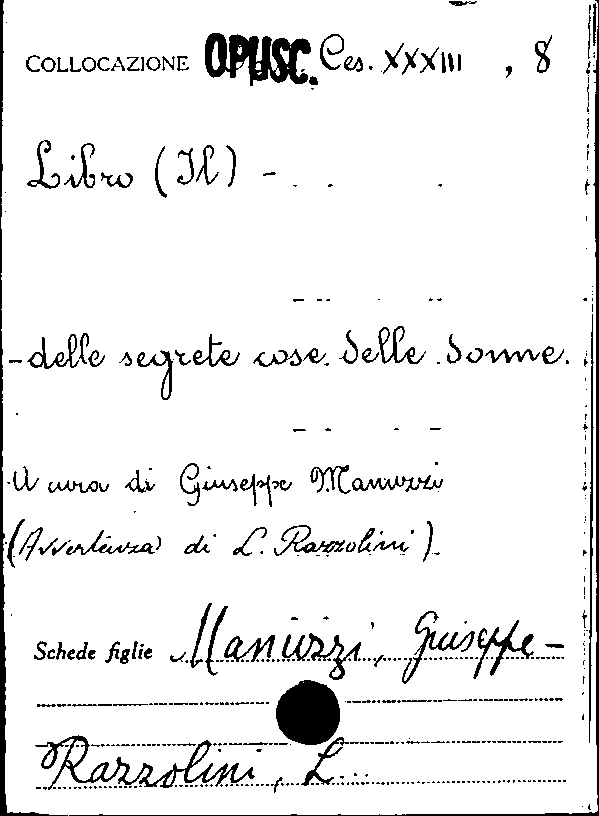 COLLOCAZIONE OPUSC. Ces. XXXIII, 8
Libro (Il) -
- delle segrete cose delle donne.
A cura di Giuseppe Manuzzi
(Avvertenza di L. Razzolini).
Schede figlie Manuzzi, Giuseppe -
Razzolini, L.